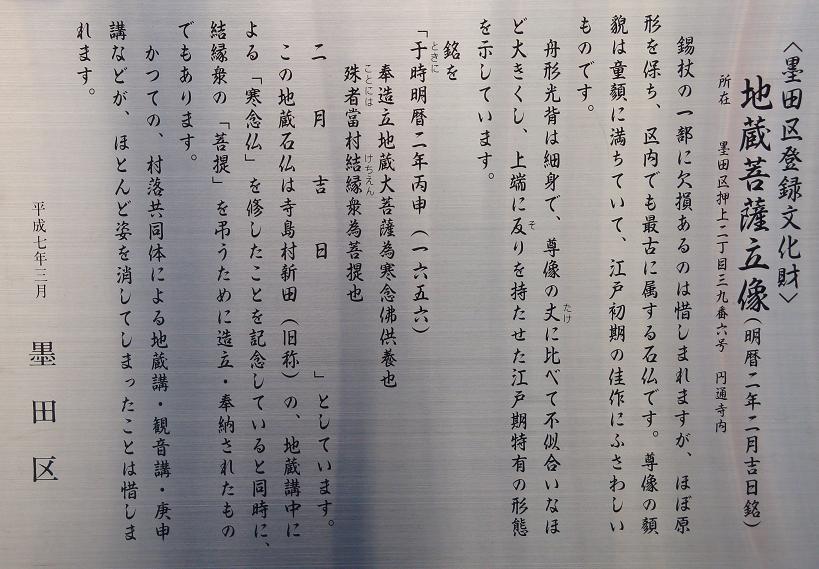 〈墨田区登録文化財〉
地蔵菩薩立像(明暦二年二月吉日銘)
所在 墨田区押上二丁目三九番六号 円通寺内
錫杖の一部に欠損あるのは惜しまれますが、ほぼ原
形を保ち、区内でも最古に属する石仏です。尊像の顔
貌は童顔に満ちていて、江戸初期の佳作にふさわしい
ものです。
舟形光背は細身で、尊像の丈に比べて不似合いなほ
ど大きくし、上端に反りを持たせた江戸期特有の形態
を示しています。
銘を
「于時明暦二年丙申(一六五六)
奉造立地蔵大菩薩為寒念佛供養也
殊者當村結縁衆為菩提也
二月吉日 」としています。
この地蔵石仏は寺島村新田(旧称)の、地蔵講中に
よる「寒念仏」を修したことを記念していると同時に、
結縁衆の「菩提」を弔うために造立・奉納されたもの
でもあります。
かつての、村落共同体による地蔵講・観音講・庚申
講などが、ほとんど姿を消してしまったことは惜しま
れます。
平成七年三月
墨田区